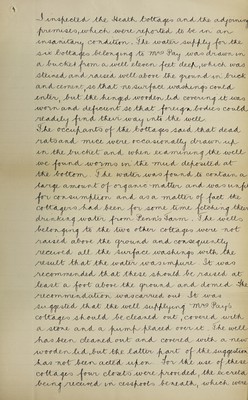 I inspected the Heath Cottages and the adjoining
premises, which were reported to be in an
insanitary condition. The water supply for the
six cottages belonging to Mrs Pay was drawn in
a bucket from a well eleven feet deep, which was
steined and raised well above the ground in brick
and cement, so that no surface washings could
enter, but the hinged wooden lid covering it was
worn and deficient so that foreign bodies could
readily find their way into the well.
The occupants of the Cottages said that dead
rats and mice were occasionally drawn up
in the bucket and when examining the well
we found worms in the mud deposited at
the bottom. The water was found to contain a
large amount of organic matter and was unfit
for consumption and as a matter of fact the
cottagers had been for some time fetching their
drinking water from Penn's Farm. The wells
belonging to the two other cottages were not
raised above the ground and consequently
received all the surface washings with the
result that the water was impure. It was
recommended that these should be raised at
least a foot above the ground and domed. The
recommendation was carried out. It was
suggested that the well supplying Mrs Pay's
cottages should be cleared out, covered with
a stone and a pump placed over it. The well
has been cleaned out and covered with a new
wooden lid, but the latter part of the suggestion
has not been acted upon. For the use of these
cottages four closets were provided, the excreta
being received in cesspools beneath, which were